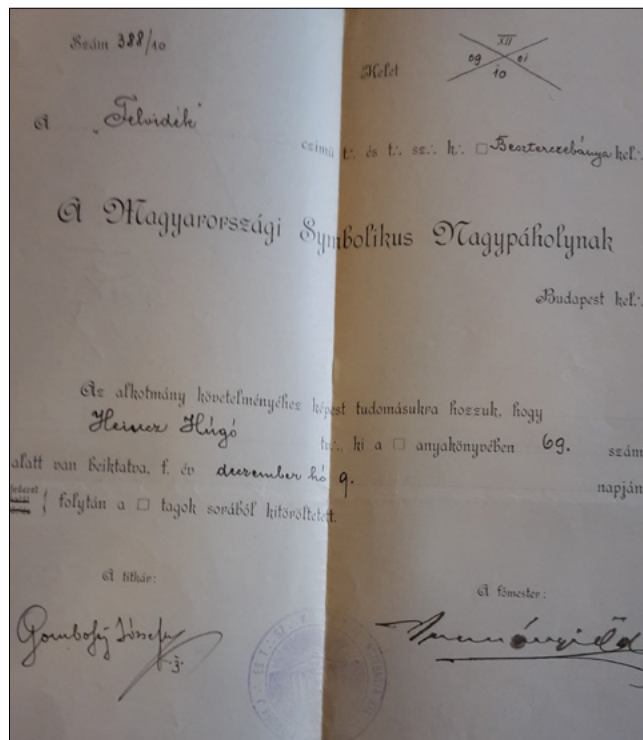 Szám 388/10
XII
Kelet 09 10 01
A „Felvidék"
czimü t∴ és t∴ sz∴ k∴ □ Beszterczebánya kel∴
A Magyarországi Symbolikus Nagypáholynak
Budapest kel∴
Az alkotmány követelményéhez képest tudomásukra hozzuk, hogy
Heincz Húgó tv∴ ki a □ anyakönyvében 69. szám
alatt van beiktatva, f. év deczember hó 9. napján
fedezet
halál
{ folytán a □ tagok sorából kitöröltetett.
A titkár:
A főmester: